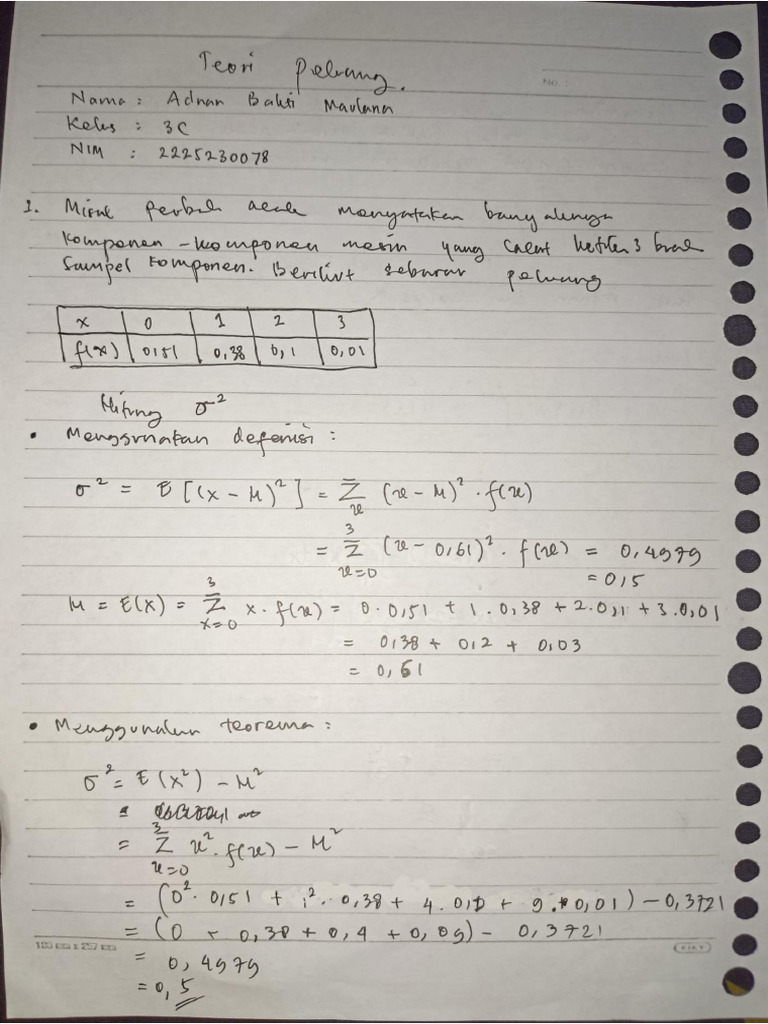 Teori Peluang.
No. :
Nama : Adnan Bakti Maulana
Kelas : 3C
NIM : 2225230078
1. Misal perbah acak menyatakan banyaknya
komponen-komponen mesin yang cacat 3 buah
sampel komponen. Berikut sebaran peluang
x 0 1 2 3
f(x) 0,51 0,38 0,1 0,01
Hitung σ²
• Menggunakan defenisi :
σ² = E[(x - M)²] = Σ_x (x - M)² . f(x)
= Σ_{x=0}^{3} (x - 0,61)² . f(x) = 0,4979
= 0,5
M = E(x) = Σ_{x=0}^{3} x . f(x) = 0.0,51 + 1.0,38 + 2.0,1 + 3.0,01
= 0,38 + 0,2 + 0,03
= 0,61
• Menggunakan teorema :
σ² = E(x²) - M²
=
= Σ_{x=0}^{3} x² . f(x) - M²
= (0² . 0,51 + 1² . 0,38 + 4 . 0,1 + 9 . 0,01) - 0,3721
= (0 + 0,38 + 0,4 + 0,09) - 0,3721
= 0,4979
= 0,5
KIKY